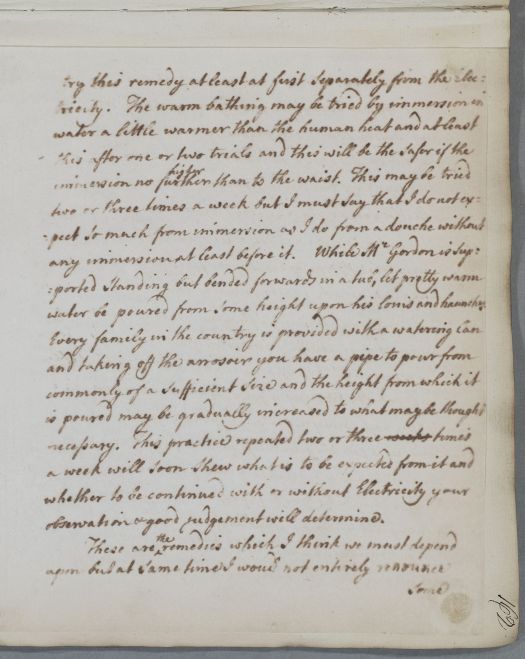 try this remedy at least at first separately from the elec=
tricity. The warm bathing may be tried by immersion in
water a little warmer than the human heat and at least
this after one or two trials and this will be the safer if the
immersion no further higher than to the waist. This may be tried
two or three times a week but I must say that I do not ex=
=pect so much from immersion as I do from a douche without
any immersion at least before it. While Mr. Gordon is sup=
=ported standing but bended forwards in a tub, let pretty warm
water be poured from some height upon his loins and haunches.
Every family in the country is provided with a watering can
and taking off the arrosoir you have a pipe to pour from
commonly of a sufficient size and the height from which it
is poured may be gradually increased to what may be thought
necessary. This practice repeated two or three weeks times
a week will soon shew what is to be expected from it and
whether to be continued with or without Electricity your
observation & good judgement will determine.
These are the remedies which I think we must depend
upon but at same time I would not entirely renounce
some